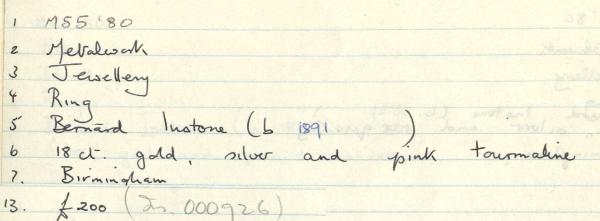 1 M55 '80
2 Metalwork
3 Jewellery
4 Ring
5 Bernard Instone (b 1891 )
6 18 ct. gold, silver and pink tourmaline
7. Birmingham
13. £200 (In. 000926)